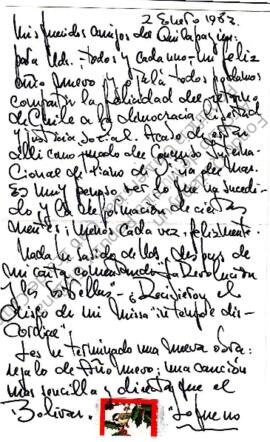 2 Enero 1983.
Mis queridos amigos de Quilapayún:
para Uds. todos y cada uno un feliz
año nuevo y ojalá todos podamos
compartir la felicidad del retorno
de Chile a la democracia, libertad
y justicia social. Acabo de estar
allí como jurado del Concurso Interna-
cional de Piano de Viña del Mar.
Es muy penoso ver lo que ha sucedi-
do y la deformación de ciertas
mentes; menos cada vez, felizmente.
Nada he sabido de Uds. después de
mi carta comentando "La Revolución
y las Estrellas". ¿Recibieron el
disco de mi Missa "in tempore dis-
cordiae"?
Les he terminado una nueva obra:
regalo de Año Nuevo; una canción
más sencilla y directa que el
Bolívar.